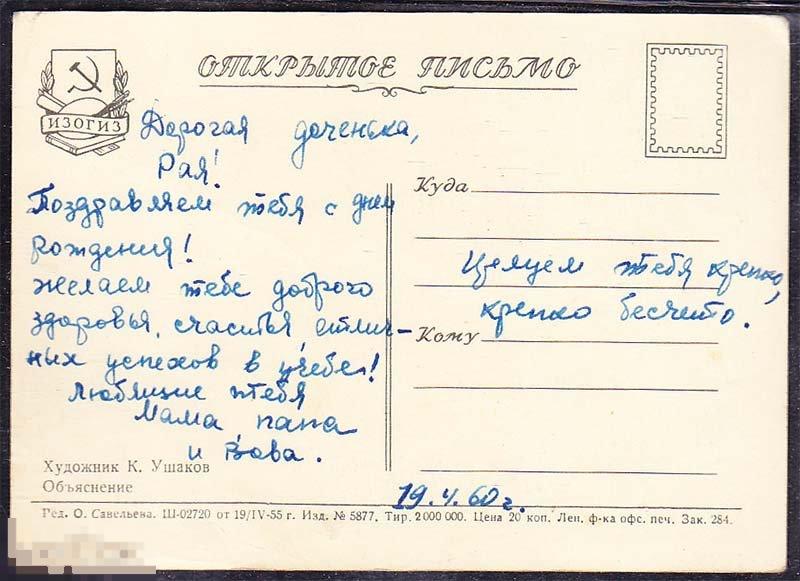 ОТКРЫТОЕ ПИСЬМО
ИЗОГИЗ
Дорогая доченька,
Рая!
Поздравляем тебя с днем
рождения!
желаем тебе доброго
здоровья, счастья, отлич-
ных успехов в учебе!
Любящие тебя
Мама папа
и Вова.
Куда
Целуем тебя крепко,
крепко бесчето.
Кому
19.4.60г.
Художник К. Ушаков
Объяснение
Ред. О. Савельева. Ш-02720 от 19/IV-55 г. Изд. № 5877. Тир. 2 000 000. Цена 20 коп. Лен. ф-ка офс. печ. Зак. 284.